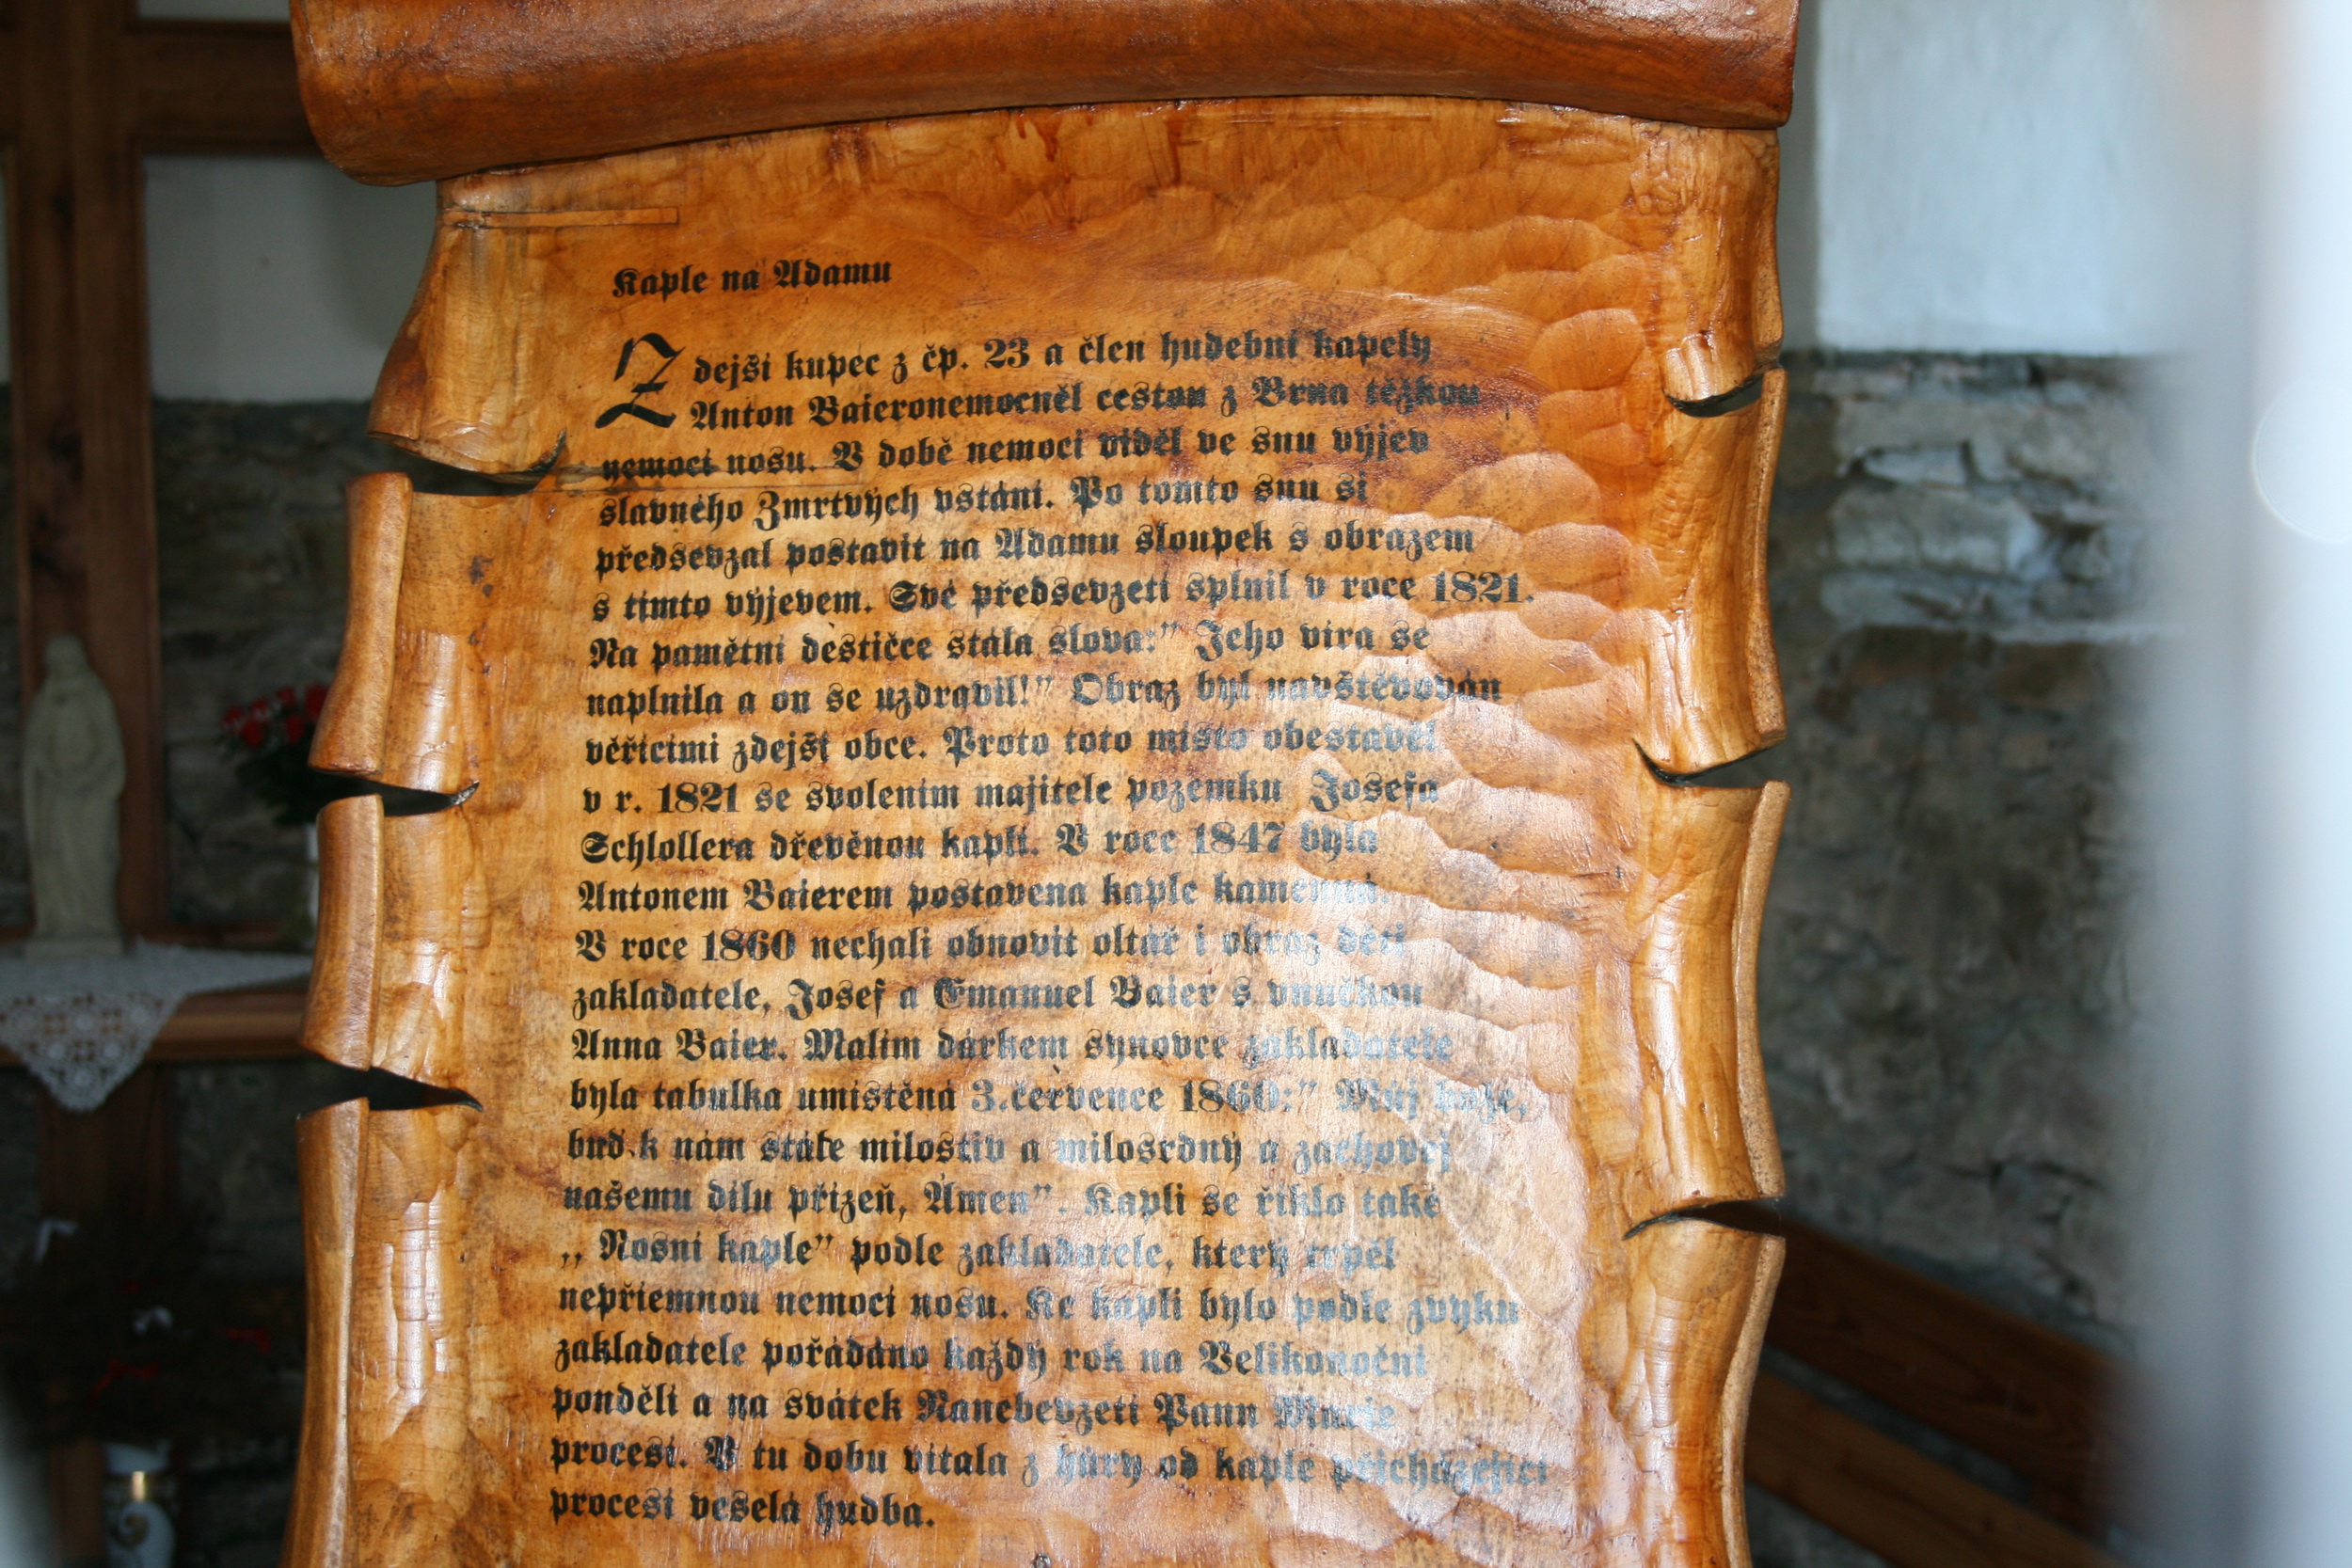 Kaple na Adamu
Zdejší kupec z čp. 23 a člen hudební kapely
Anton Baieronemocněl cestou z Brna těžkou
nemocí nosu. V době nemoci viděl ve snu výjev
slavného Zmrtvých vstání. Po tomto snu si
předsevzal postavit na Adamu sloupek s obrazem
s tímto výjevem. Své předsevzetí splnil v roce 1821.
Na pamětní destičce stála slova:” Jeho víra se
naplnila a on se uzdravil!” Obraz byl navštěvován
věřícími zdejší obce. Proto toto místo obestavěl
v r. 1821 se svolením majitele pozemku Josefa
Schlollera dřevěnou kaplí. V roce 1847 byla
Antonem Baierem postavena kaple kamenná.
V roce 1860 nechali obnovit oltář i obraz děti
zakladatele, Josef a Emanuel Baier s vnučkou
Anna Baier. Malím dárkem synovce zakladatele
byla tabulka umístěná 3.července 1860:” Můj bože,
buď k nám stále milostiv a milosrdný a zachovej
našemu dílu přízeň, Amen”. Kapli se říklo také
,, Nosní kaple” podle zakladatele, který trpěl
nepříemnou nemocí nosu. Ke kapli bylo podle zvyku
zakladatele pořádáno každý rok na Velikonoční
pondělí a na svátek Nanebevzetí Pann Marie
procesí. V tu dobu vítala z hůry od kaple přicházející
procesí veselá hudba.